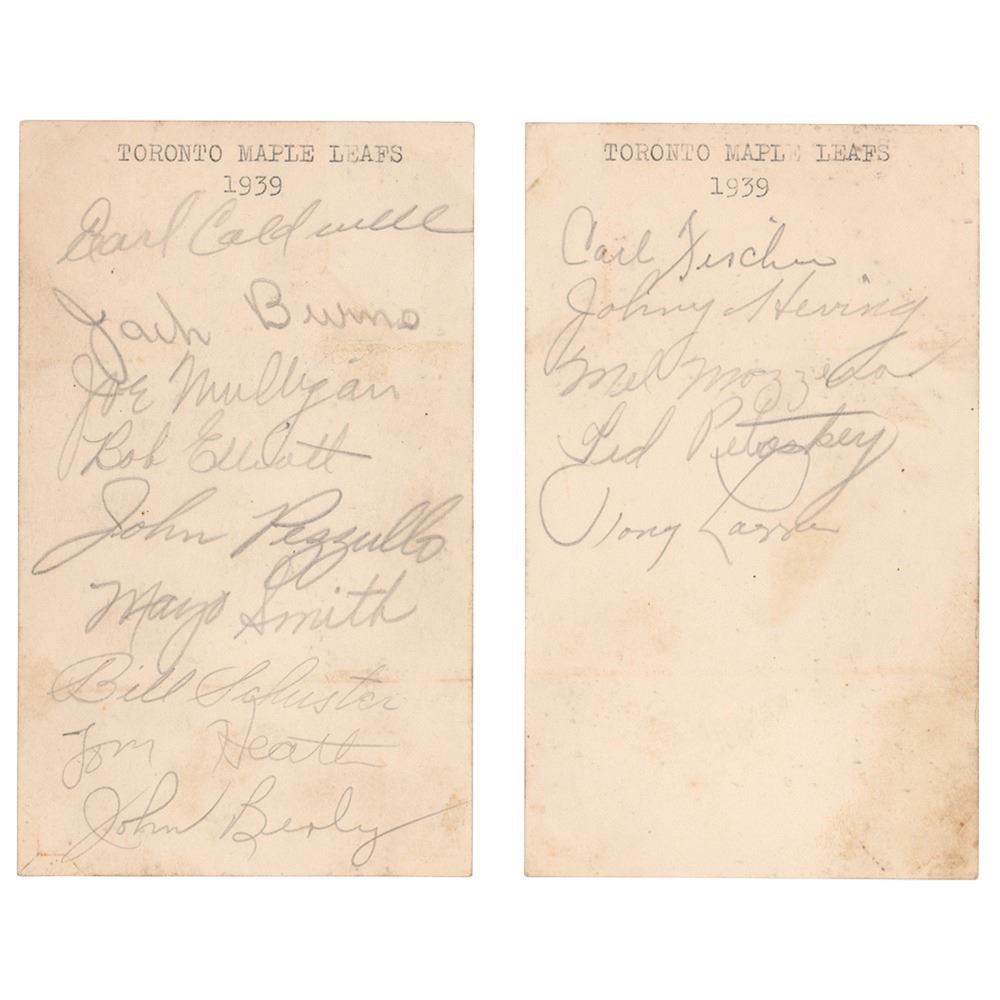 TORONTO MAPLE LEAFS
1939
Earl Caldwell
Jack Burns
Joe Mulligan
Bob Elliott
John Pezzullo
Mayo Smith
Bill Schuster
Tom Heath
John Berly
TORONTO MAPLE LEAFS
1939
Carl Fischer
Johny Heving
Mel Mazzera
Ted Petoskey
Tony Lazzeri